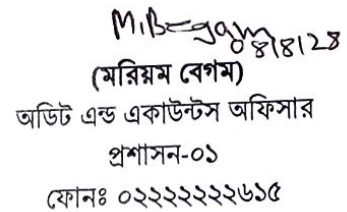 M.Begam
08/8/28
(মরিয়ম বেগম)
অডিট এন্ড একাউন্টস অফিসার
প্রশাসন-০১
ফোনঃ ০২২২২২২২৬১৫